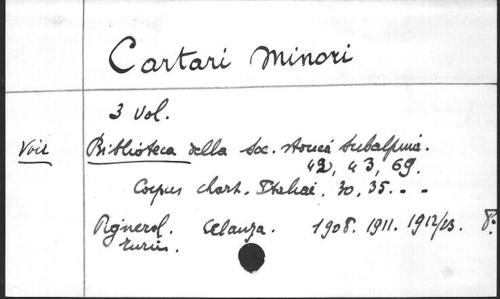 Cartari Minori
3 Vol.
Voir Biblioteca della Soc. storica subalpina.
42, 43, 69.
Corpus chart. Italiae. 30, 35. . .
Pignerol. 1908. 1911. 1912/23. 8º
Turin.